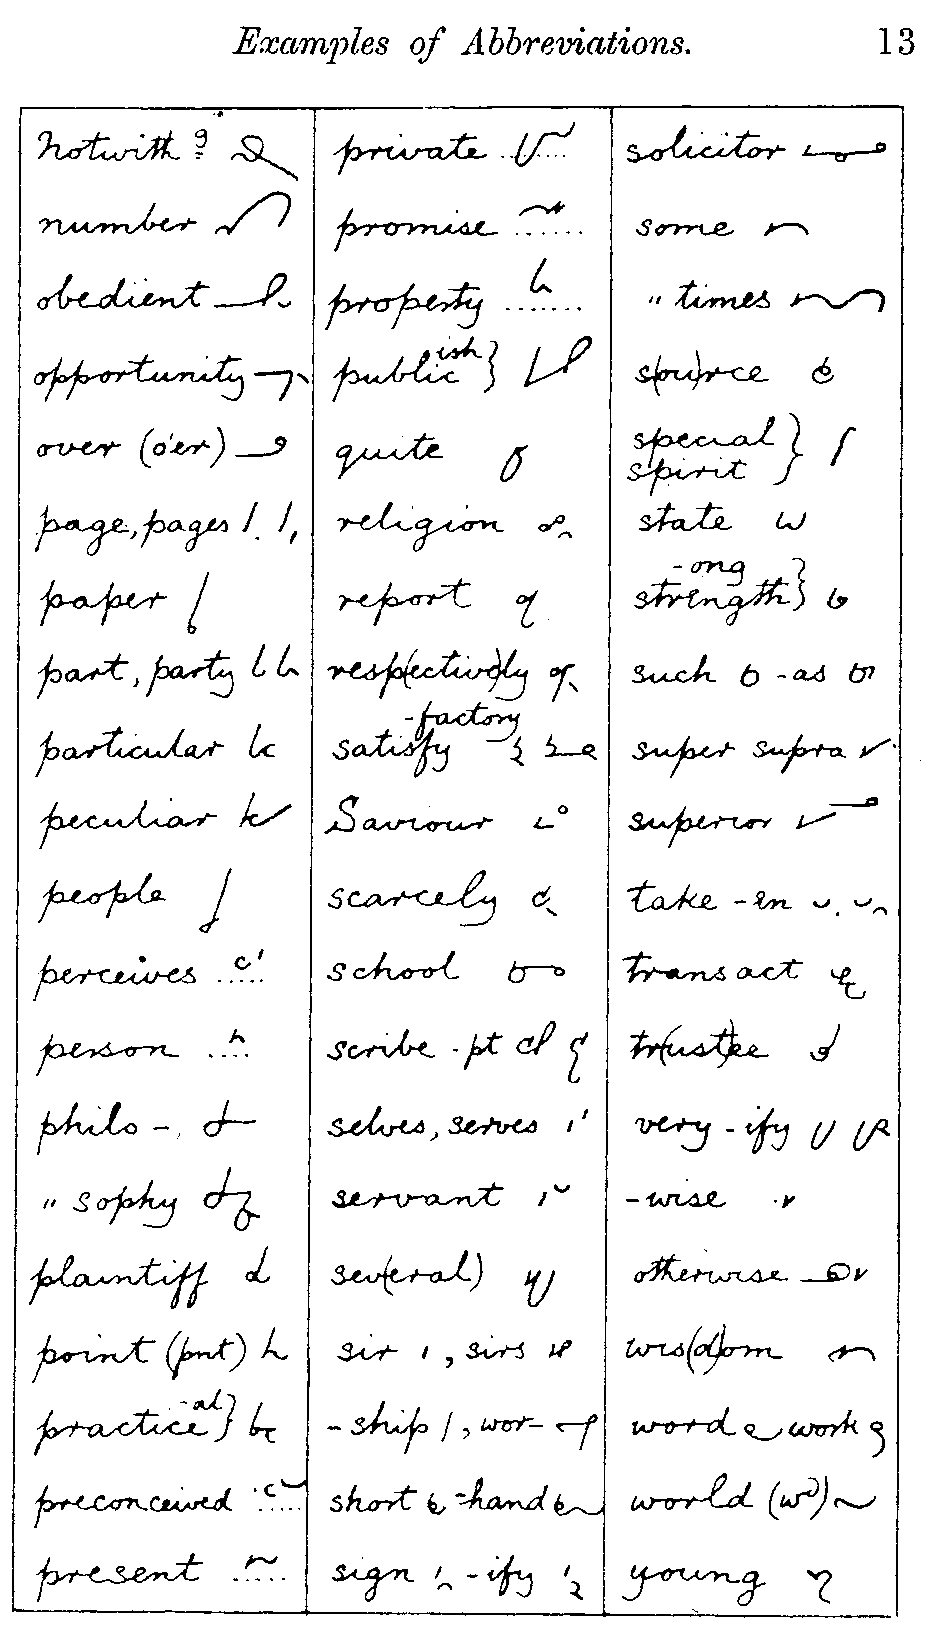 Examples of Abbreviations. 13
Notwithg
number
obedient
opportunity
over (o'er)
page, pages
paper
part, party
particular
peculiar
people
perceives
person
philo -
" sophy
plaintiff
point (pnt)
practice -al}
preconceived
present
private
promise
property
public ish}
quite
religion
report
resp(ective)ly
satisfy -factory
Saviour
scarcely
school
scribe - pt
selves, serves
servant
sev(eral)
sir , sirs
- ship , wor-
short -hand
sign - ify
solicitor
some
" times
s(ou)rce
special }
spirit }
state
-ong
strength}
such - as
super supra
superior
take - en
transact
tr(ust)ee
very - ify
-wise
otherwise
wis(d)om
word work
world (wd)
young